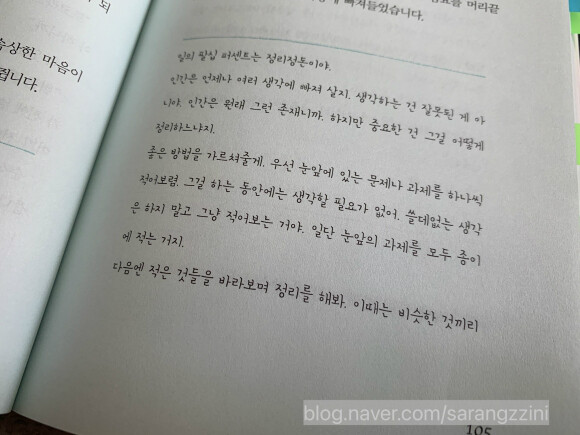 되
습상한 마음이
됩니다.
머리끝
빠져들었습니다.
일의 팔십 퍼센트는 정리정돈이야.
인간은 언제나 여러 생각에 빠져 살지. 생각하는 건 잘못된 게 아
니야. 인간은 원래 그런 존재니까. 하지만 중요한 건 그걸 어떻게
정리하느냐지.
좋은 방법을 가르쳐줄게. 우선 눈앞에 있는 문제나 과제를 하나씩
적어보렴. 그걸 하는 동안에는 생각할 필요가 없어. 쓸데없는 생각
은 하지 말고 그냥 적어보는 거야. 일단 눈앞의 과제를 모두 종이
에 적는 거지.
다음엔 적은 것들을 바라보며 정리를 해봐. 이때는 비슷한 것끼리
105
blog.naver.com/sarangzzini